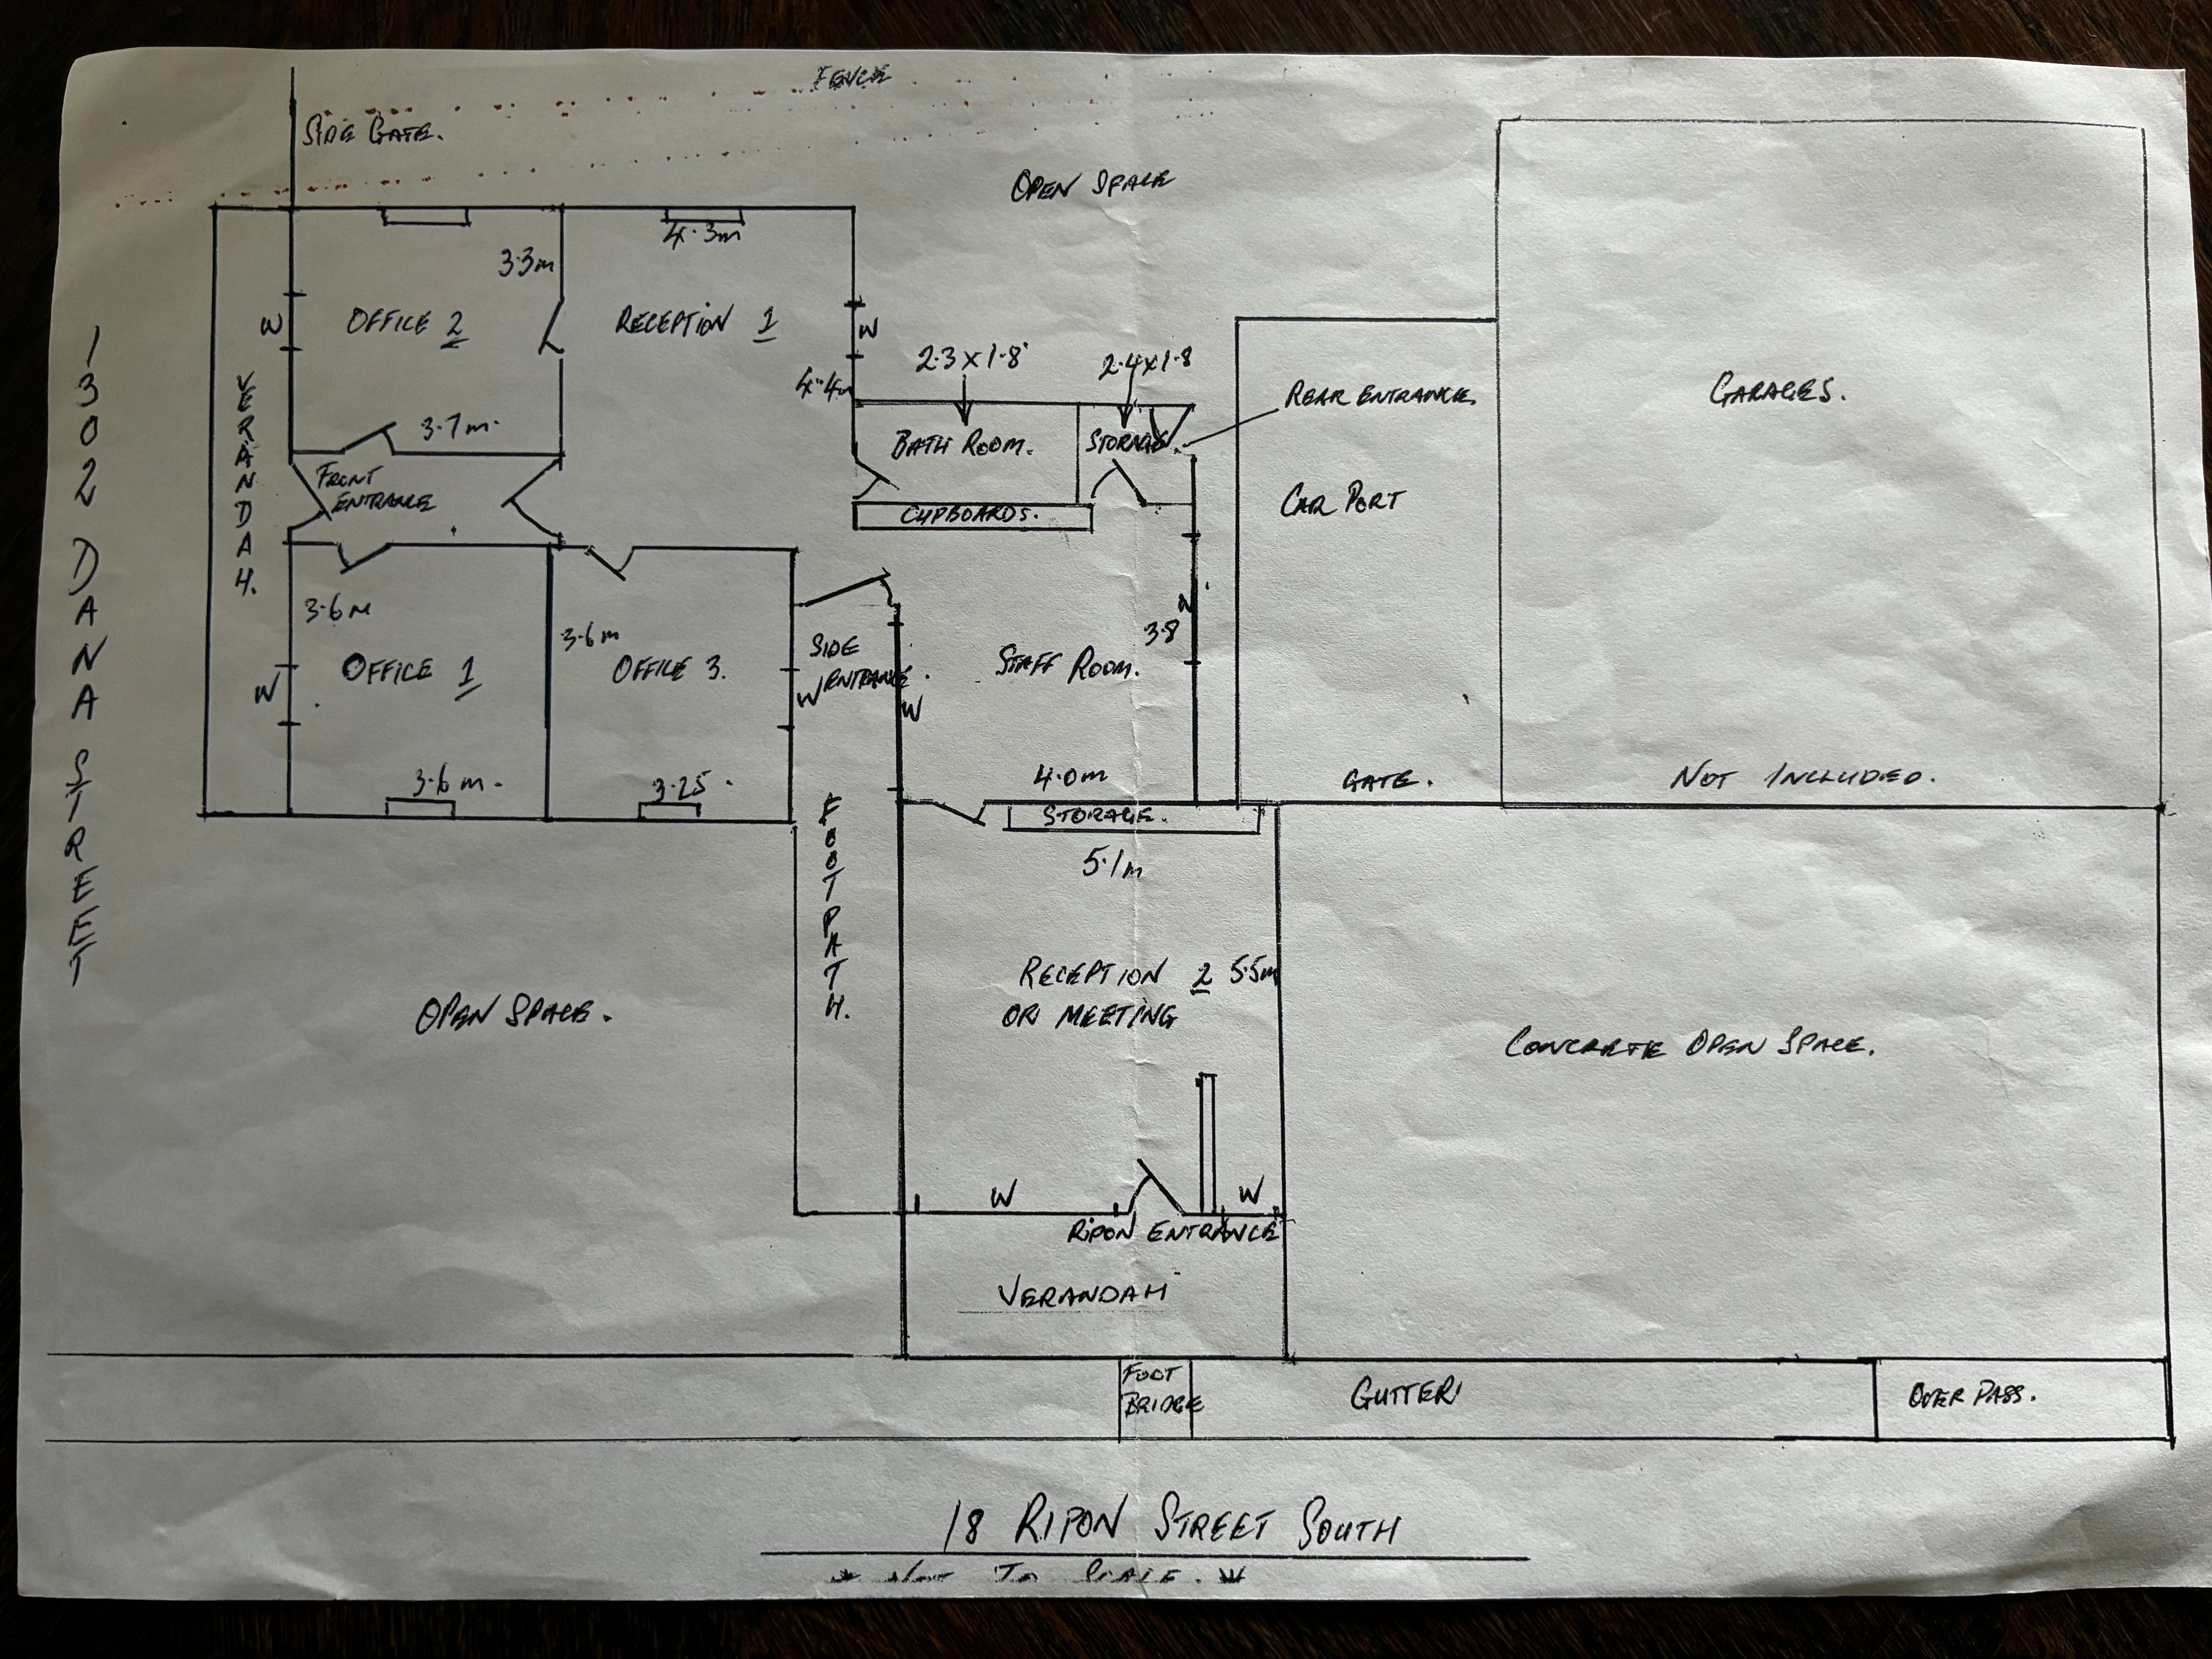 FENCE
SIDE GATE.
OPEN SPACE
4.3m
3.3m
OFFICE 2
RECEPTION 1
W
W
2.3 x 1.8
2.4 x 1.8
4.4m
REAR ENTRANCE.
GARAGES.
VERANDAH.
3.7m.
BATH ROOM.
STORAGE.
FRONT
ENTRANCE
CAR PORT
CUPBOARDS.
1302 DANA STREET
3.6m
3.6m
OFFICE 1
OFFICE 3.
SIDE
ENTRANCE.
W
W
W
STAFF ROOM.
W
3.8
3.6m.
3.25.
4.0m
GATE.
NOT INCLUDED.
FOOTPATH.
STORAGE.
5.1m
RECEPTION 2
5.5m
OR MEETING
OPEN SPACE.
CONCRETE OPEN SPACE.
W
W
RIPON ENTRANCE
VERANDAH
FOOT
BRIDGE
GUTTER
OVER PASS.
18 RIPON STREET SOUTH
* NOT TO SCALE. *